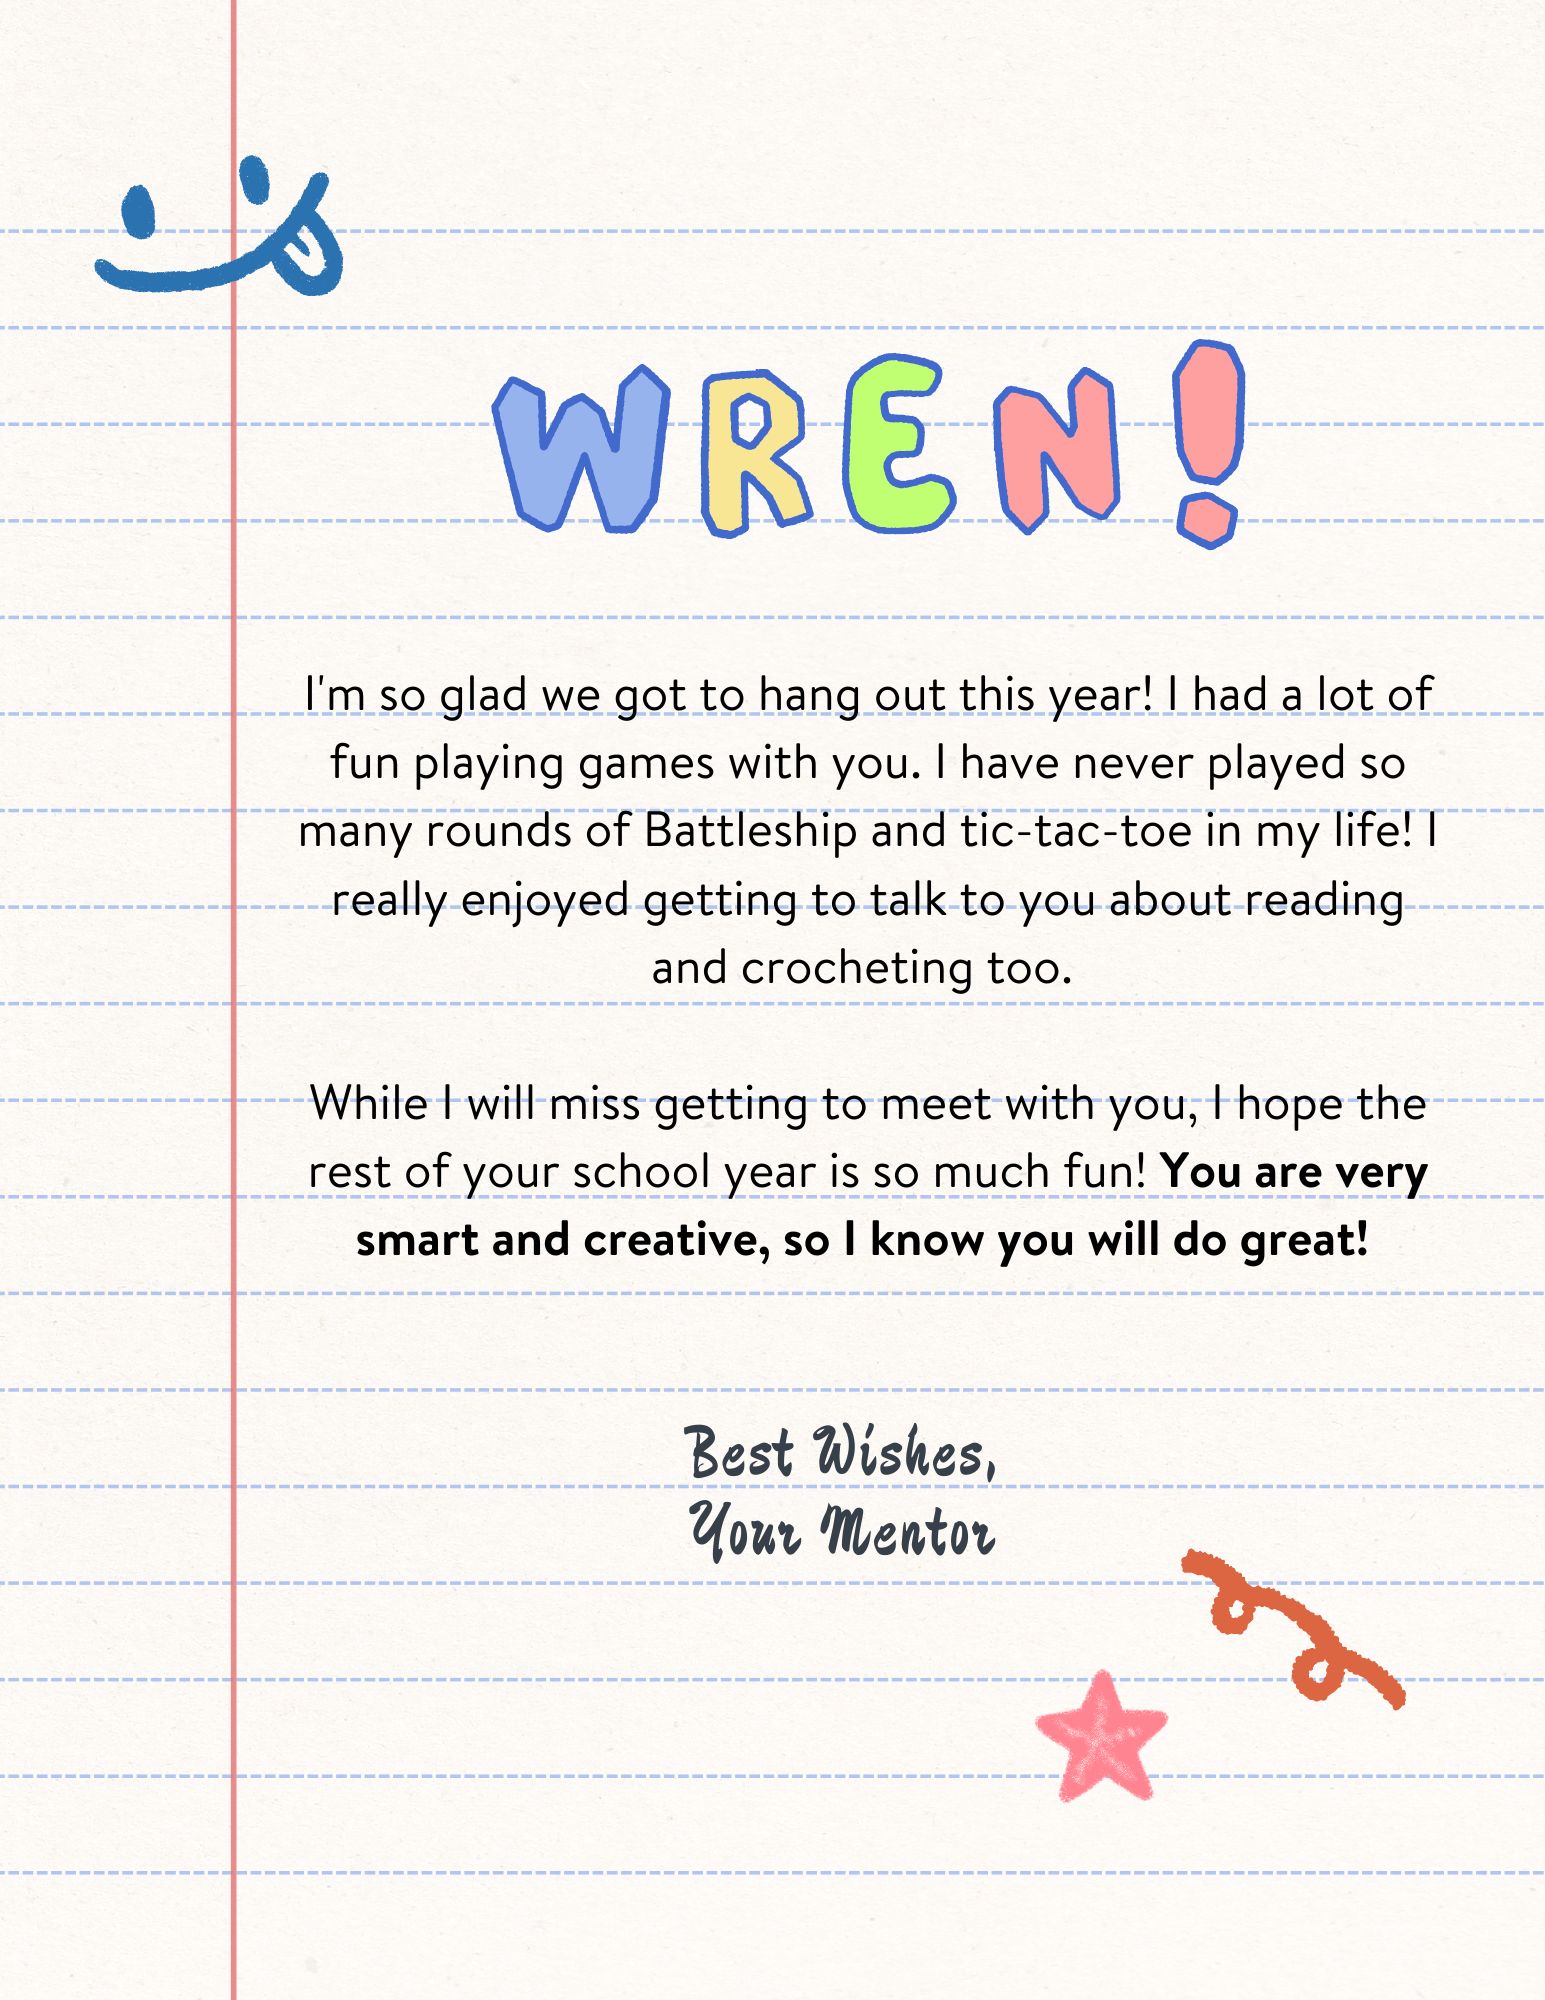 WREN!
I'm so glad we got to hang out this year! I had a lot of
fun playing games with you. I have never played so
many rounds of Battleship and tic-tac-toe in my life! I
really enjoyed getting to talk to you about reading
and crocheting too.
While I will miss getting to meet with you, I hope the
rest of your school year is so much fun! You are very
smart and creative, so I know you will do great!
Best Wishes,
Your Mentor